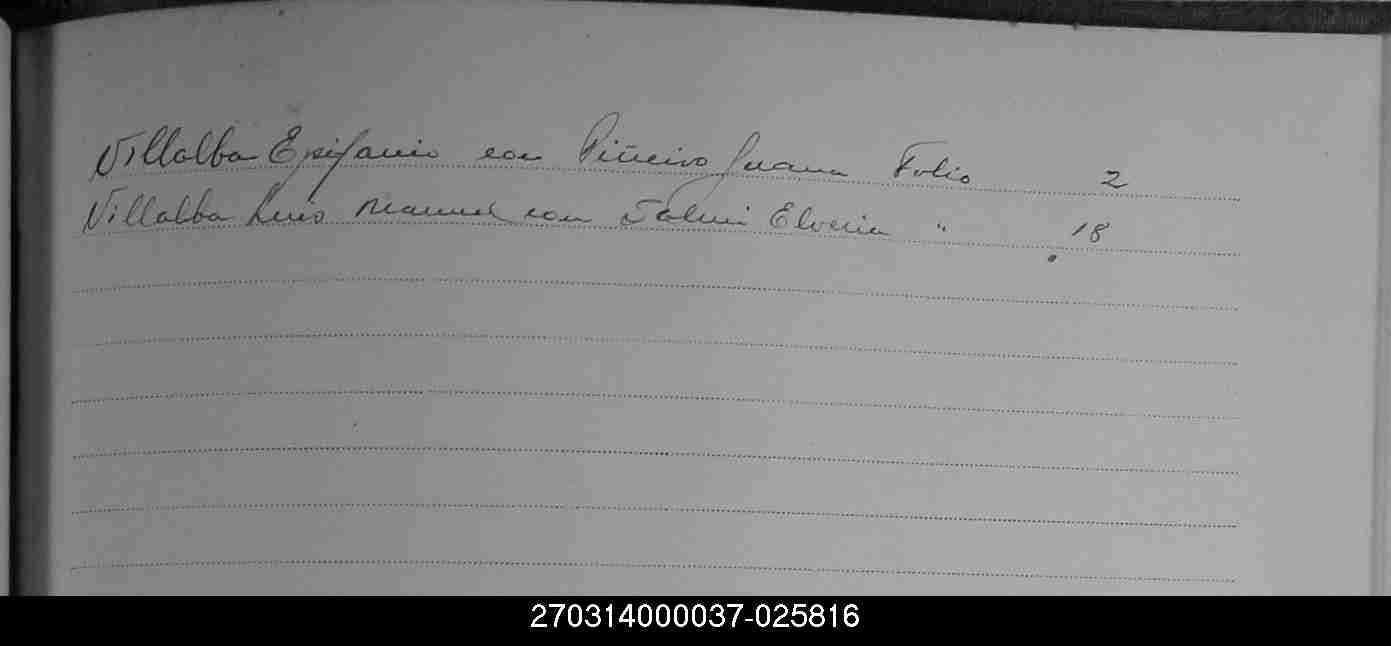 Villalba Epifanio con Piñeiro Juana Folio 2
Villalba Luis Manuel con Salvi Elveria " 18
270314000037-025816